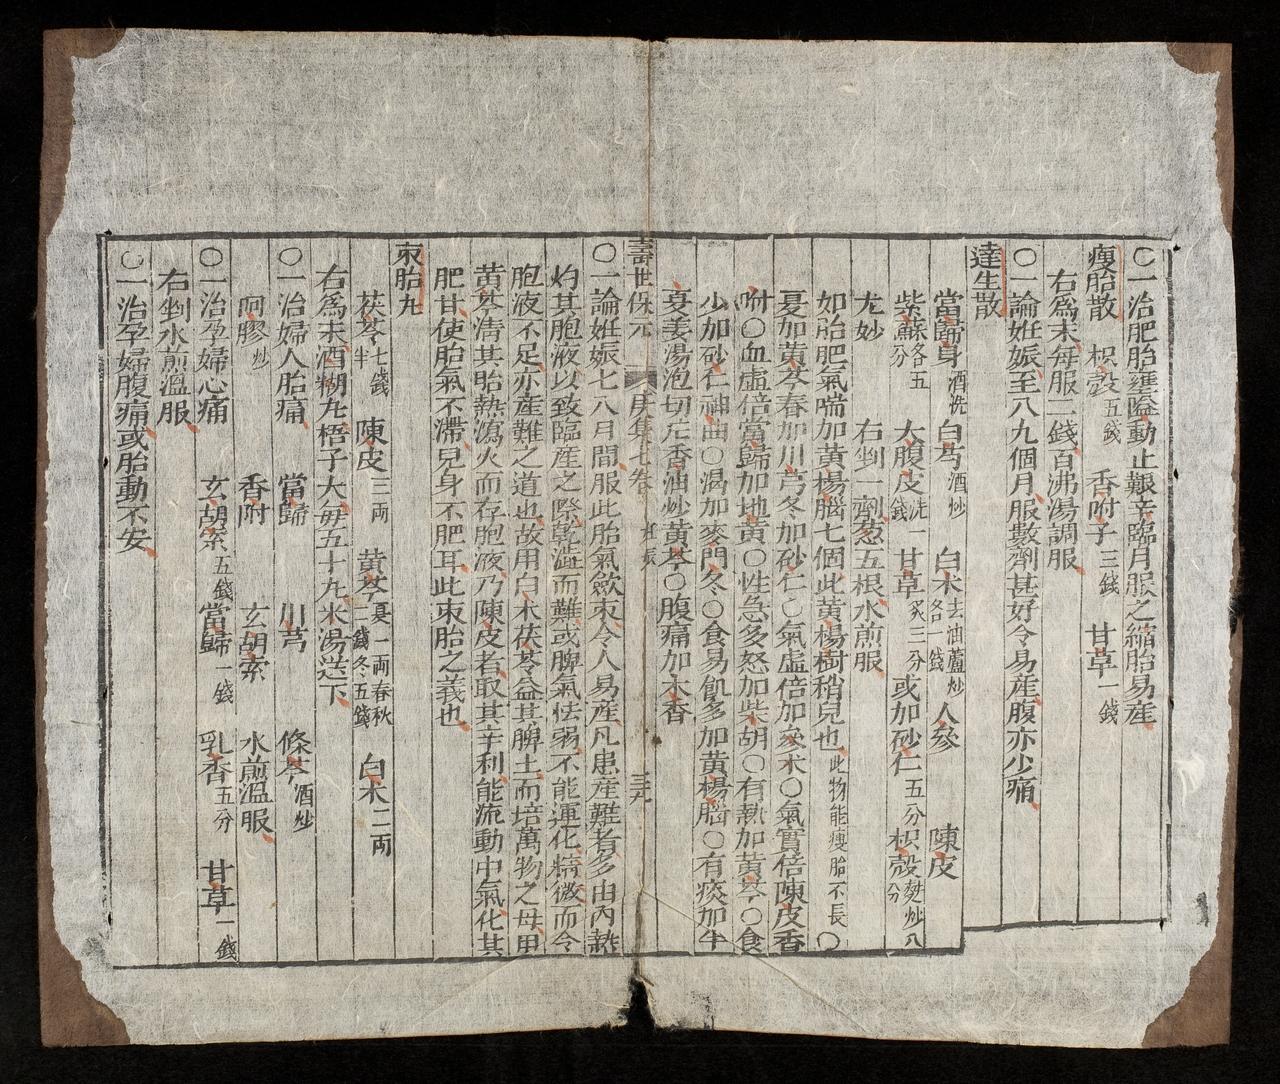 〇一治肥胎壅隘動止艱辛臨月服之縮胎易產
瘦胎散 枳殼五錢 香附子三錢 甘草一錢
右為末每服二錢百沸湯調服
〇一論姙娠至八九個月服數劑甚好令易產腹亦少痛
達生散
當歸身酒洗 白芍酒炒 白朮去油蘆炒各一錢 人參 陳皮
紫蘇各五分 大腹皮洗一錢 甘草炙三分 或加砂仁五分 枳殼麩炒八分
尤妙 右剉一劑葱五根水煎服
如胎肥氣喘加黃楊腦七個此黃楊樹稍兒也此物能瘦胎不長〇
夏加黃芩春加川芎冬加砂仁〇氣虛倍加參朮〇氣實倍陳皮香
附〇血虛倍當歸加地黃〇性急多怒加柴胡〇有熱加黃芩〇食
少加砂仁神曲〇渴加麥門冬〇食易飢多加黃楊腦〇有痰加半
夏姜湯泡切片香油炒黃芩〇腹痛加木香
壽世保元 庚集七卷 姙娠 三九
〇一論姙娠七八月間服此胎氣歛束令人易產凡患產難者多由內熱
灼其胞液以致臨產之際乾澁而難或脾氣怯弱不能運化精微而令
胞液不足亦產難之道也故用白朮茯苓益其脾土而培萬物之母用
黃芩清其胎熱瀉火而存胞液乃陳皮者取其辛利能流動中氣化其
肥甘使胎氣不滯兒身不肥耳此束胎之義也
束胎丸
茯苓七錢半 陳皮三兩 黃芩夏一兩春秋七錢冬五錢 白朮二兩
右為末酒糊丸梧子大每五十丸米湯送下
〇一治婦人胎痛 當歸 川芎 條芩酒炒
阿膠炒 香附 玄胡索 水煎溫服
〇一治孕婦心痛 玄胡索五錢 當歸一錢 乳香五分 甘草一錢
右剉水煎溫服
〇一治孕婦腹痛或胎動不安